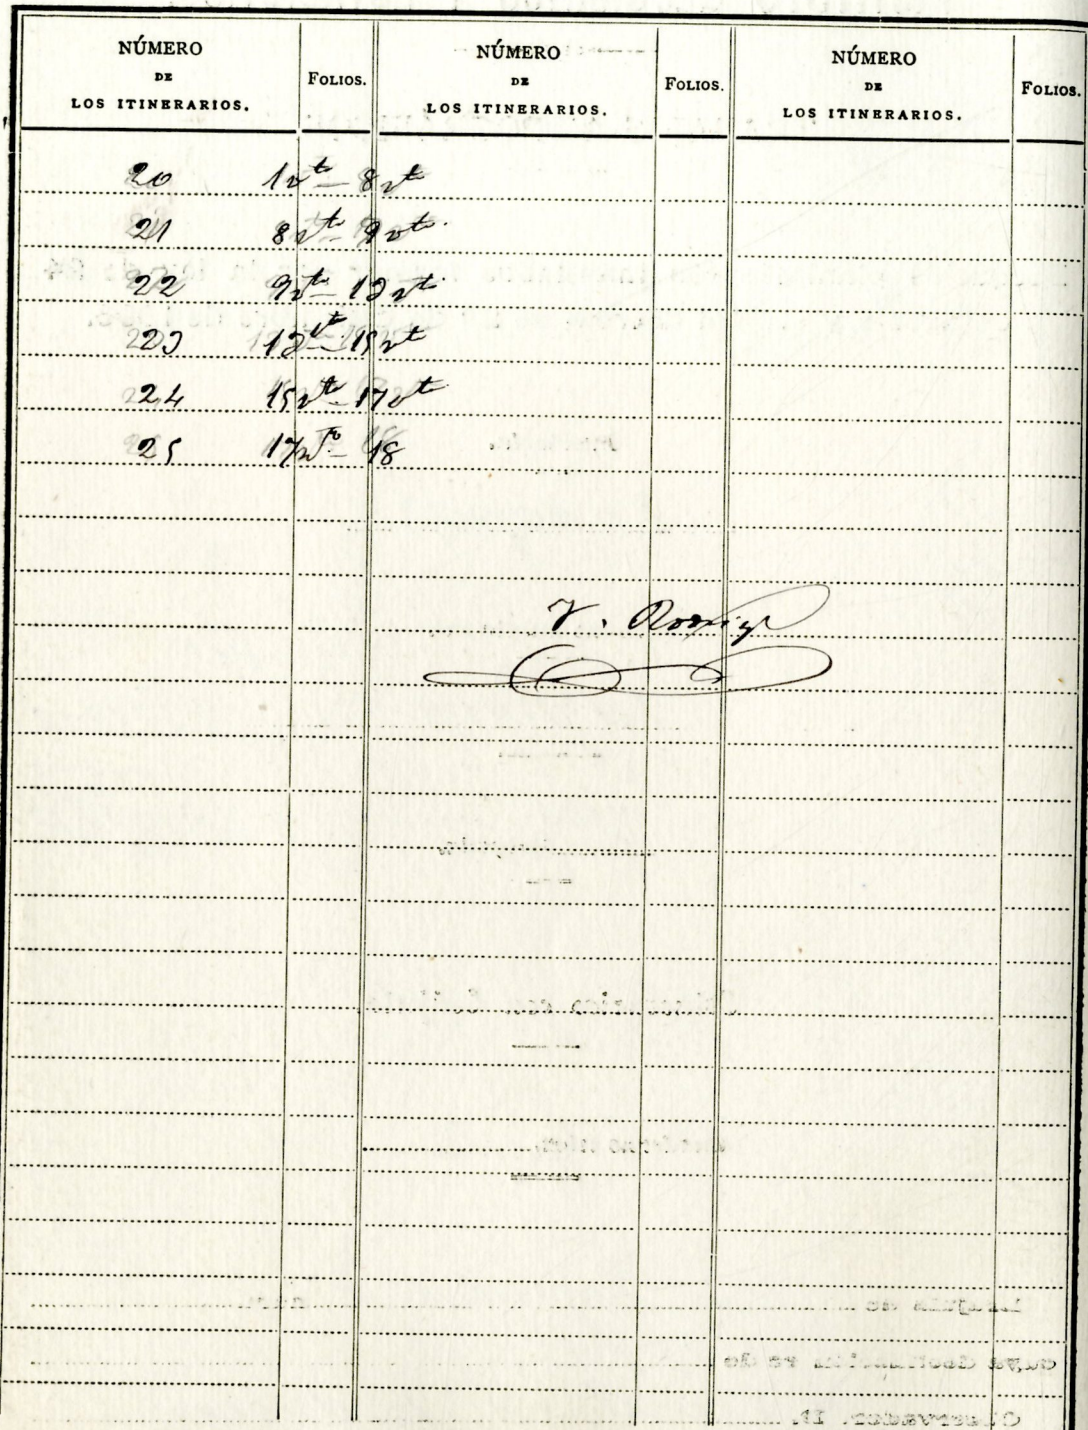 NÚMERO DE LOS ITINERARIOS. FOLIOS. NÚMERO DE LOS ITINERARIOS. FOLIOS. NÚMERO DE LOS ITINERARIOS. FOLIOS.
20 1vto - 8vto
21 8vto - 9vto
22 9vto - 13vto
23 13vto - 15vto
24 15vto - 17vto
25 17vto - 18
V. Rodrigz